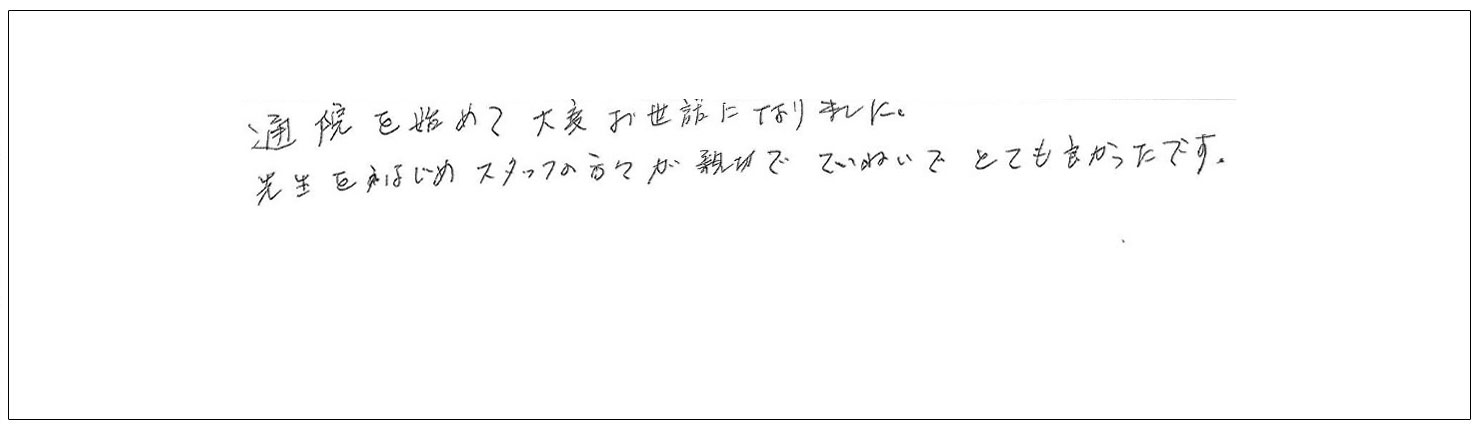 通院を始めて大変お世話になりました。
先生をはじめスタッフの方々が親切でていねいでとても良かったです。